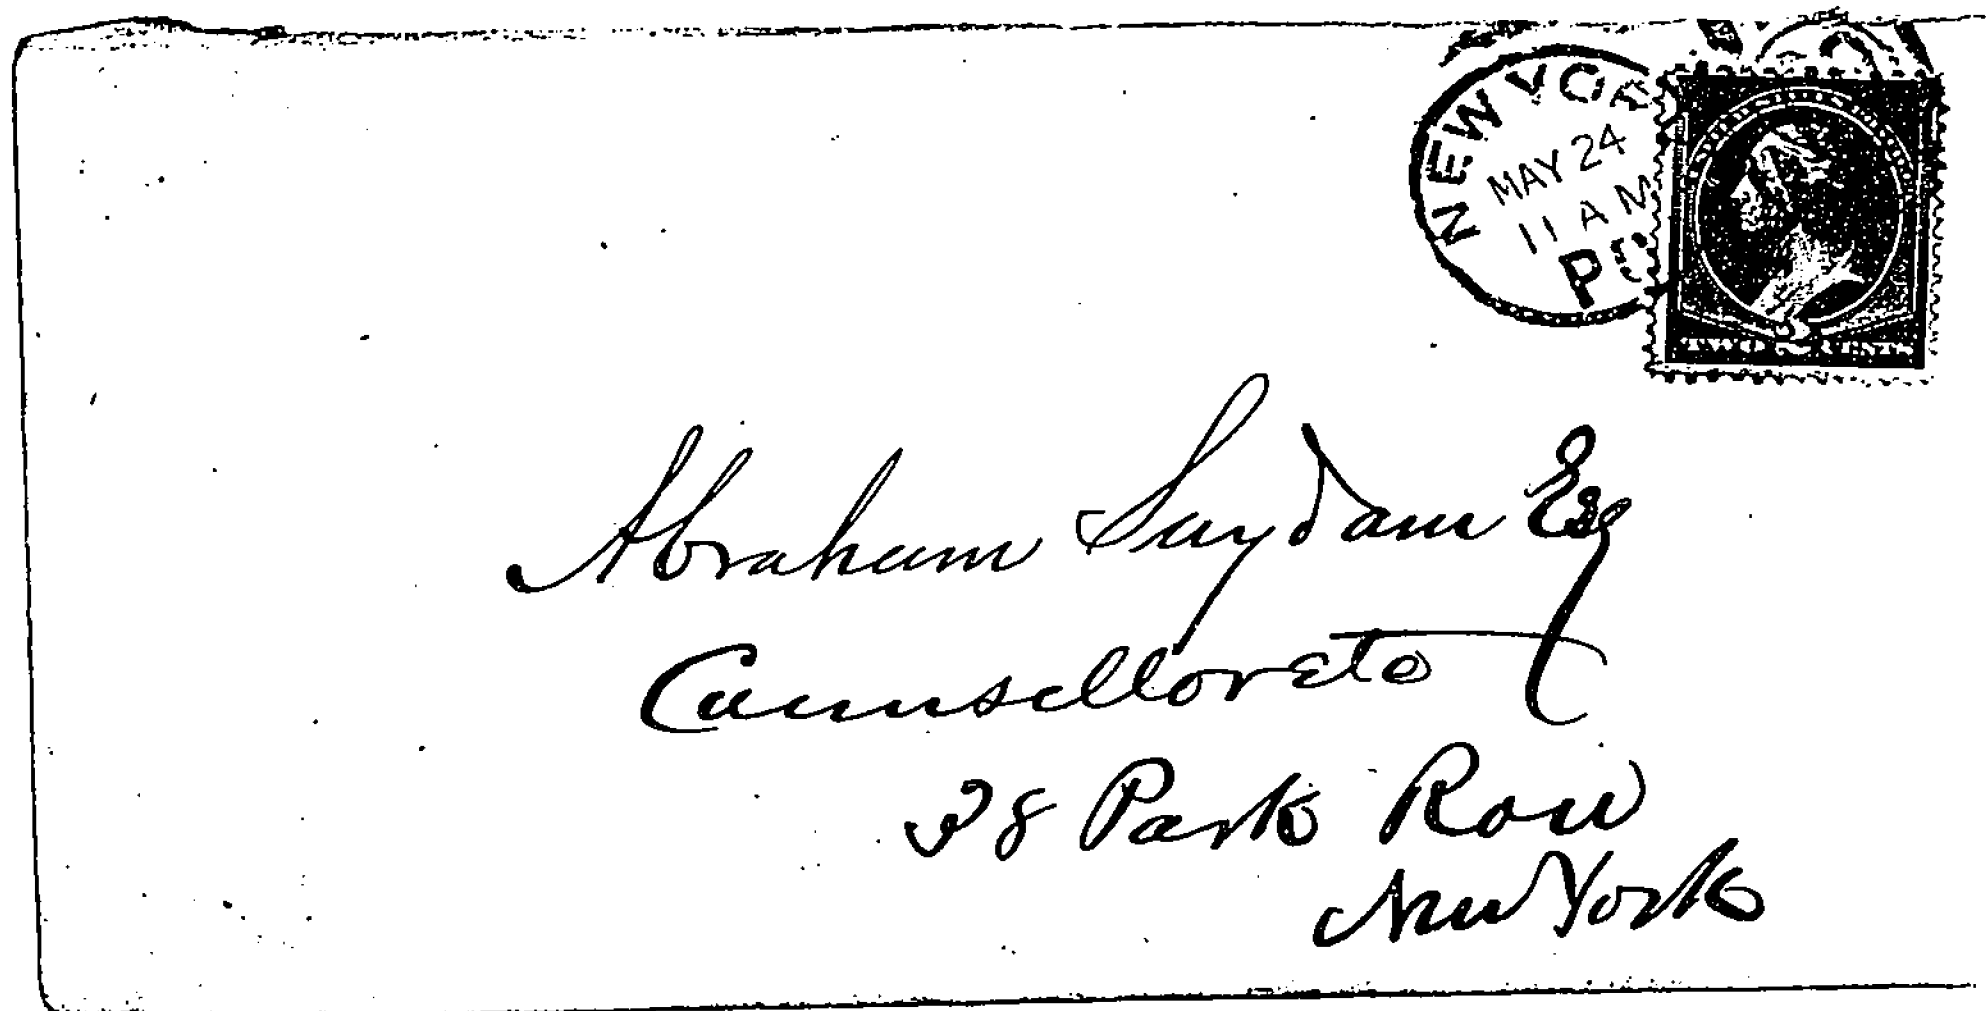 NEW YOR
MAY 24
11 AM
PO
TWO 2 CENTS
Abraham Suydam Esq
Counsellor etc
38 Park Row
New York